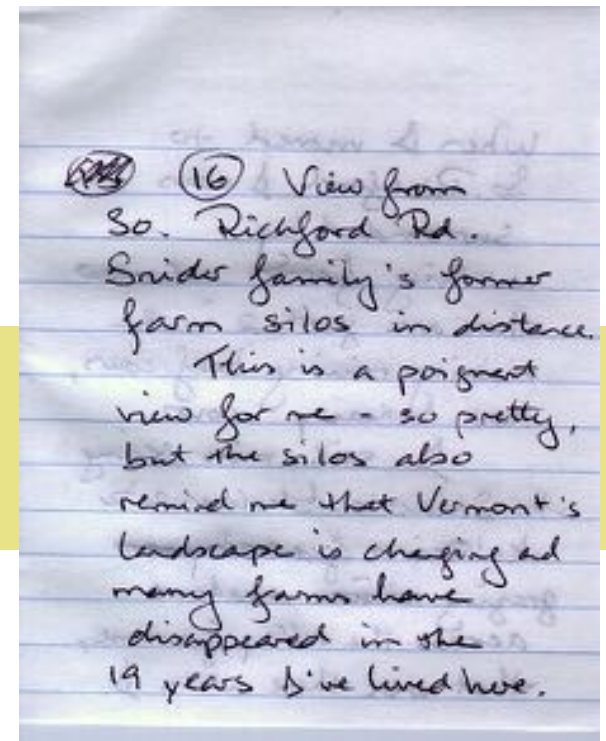 (16) View from
So. Richford Rd.
Snider family's former
farm silos in distance.
This is a poignent
view for me - so pretty,
but the silos also
remind me that Vermont's
landscape is changing ad
many farms have
disappeared in the
19 years I've lived here.